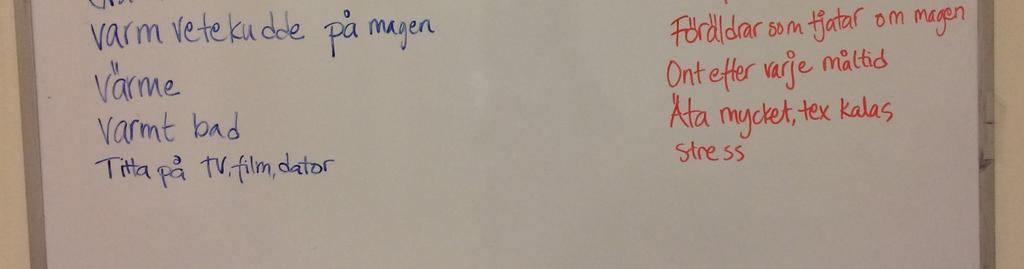 varm vetekudde på magen
Värme
Varmt bad
Titta på TV, film, dator
Föräldrar som tjatar om magen
Ont efter varje måltid
Äta mycket, tex kalas
Stress